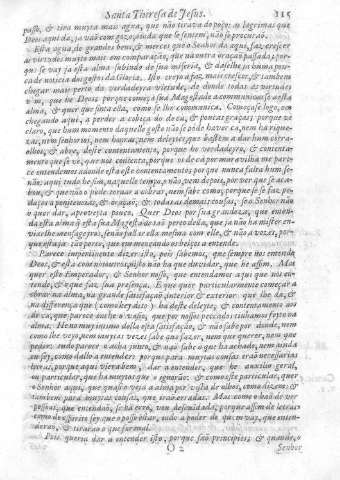 Santa Theresa de Jesus. 115
posso, & tira muyto mais agua, que não tirava do poço: as lagrimas que
Deos aqui dà, ja vaõ com gozo, ainda que se sentem, não se procuraõ.
Esta agua, de grandes bens, & merces que o Senhor dà aqui, faz crecer
as virtudes muyto mais em comparação, que na outra oração passada; por-
que se vay ja esta alma subindo de sua miseria, & dàselhe ja huma pou-
ca de noticia dos gostos da Gloria. Isto creyo a faz mais crecer, & tambem
chegar mais perto da verdadeyra virtude, de donde todas as virtudes
vem, que he Deos: porque começa sua Magestade a communicarse a esta
alma, & quer que sinta ella, como se lhe communica. Começase logo, em
chegando aqui, a perder a cobiça do de cà, & poucas graças: porque vè
claro, que hum momento daquelle gosto não se pòde haver cà, nem ha rique-
zas, nem senhorios, nem honras, nem deleytes, que bastem a dar hum
olhos, & abre, deste contentamento, porque he verdadeyro, & conten-
tamento que se vè, que nos contenta, porque os de cà por maravilha me pare-
ce entendemos adonde està este contentamento: porque nunca falta hum se-
não: aqui tudo he sim, naquelle tempo, o não, vem depois, por ver que se aca-
bou, & que não o pòde tornar a cobrar, nem sabe como; porque se se faz pe-
daços a penitencias, & oração, & todas as demais cousas, se o Senhor não
o quer dar, aproveyta pouco. Quer Deos por sua grandeza, que enten-
da esta alma, que està sua Magestade taõ perto della, que ja não ha mister en-
viarlhe mensageyros, senão fallar ella mesma com elle, & não a vozes, por-
que està ja taõ perto, que em meneando os beyços a entende.
Parece impertinente dizer isto, pois sabemos, que sempre nos entende
Deos, & està comnosco, nisto não ha que duvidar, que he assim. Mas
quer este Emperador, & Senhor nosso, que entendamos aqui que nos en-
tende, & o que faz sua presença, & que quer particularmente começar a
obrar na alma, na grande satisfação, interior, & exterior que lhe dà, &
na differença que (como key dito) ha deste deleyte, & contentamento aos
de cà, que parece enche o vasio, que por nossos peccados tinhamos feyto na
alma. He no muy intimo della esta satisfação, & não sabe por donde, nem
como lhe veyo, nem muytas vezes sabe que fazer, nem que querer, nem que
pedir: tudo parece o acha junto, & não sabe o que ha achado, nem ainda
eu sey, como dallo a entender: porque para muytas cousas eraõ necessarias
letras, porque aqui viera bem, dar a entender, que he auxilio geral,
ou particular, que ha muytos que o ignoraõ: & como este particular, quer
o Senhor aqui, que quasi o veja a alma por vista de olhos, como dizem; &
tambem para muytas cousas, que iraõ erradas. Mas como o haõ de ver
pessoas, que entendaõ, se ha erro, vou descuidada; porque assim de letras
como de espirito sey, que o posso estar, indo a poder de quem vay, que enten-
deraõ, & tiraraõ o que for mal.
Pois queria dar a entender isto, porque saõ principios, & quando, o
O 2 Senhor